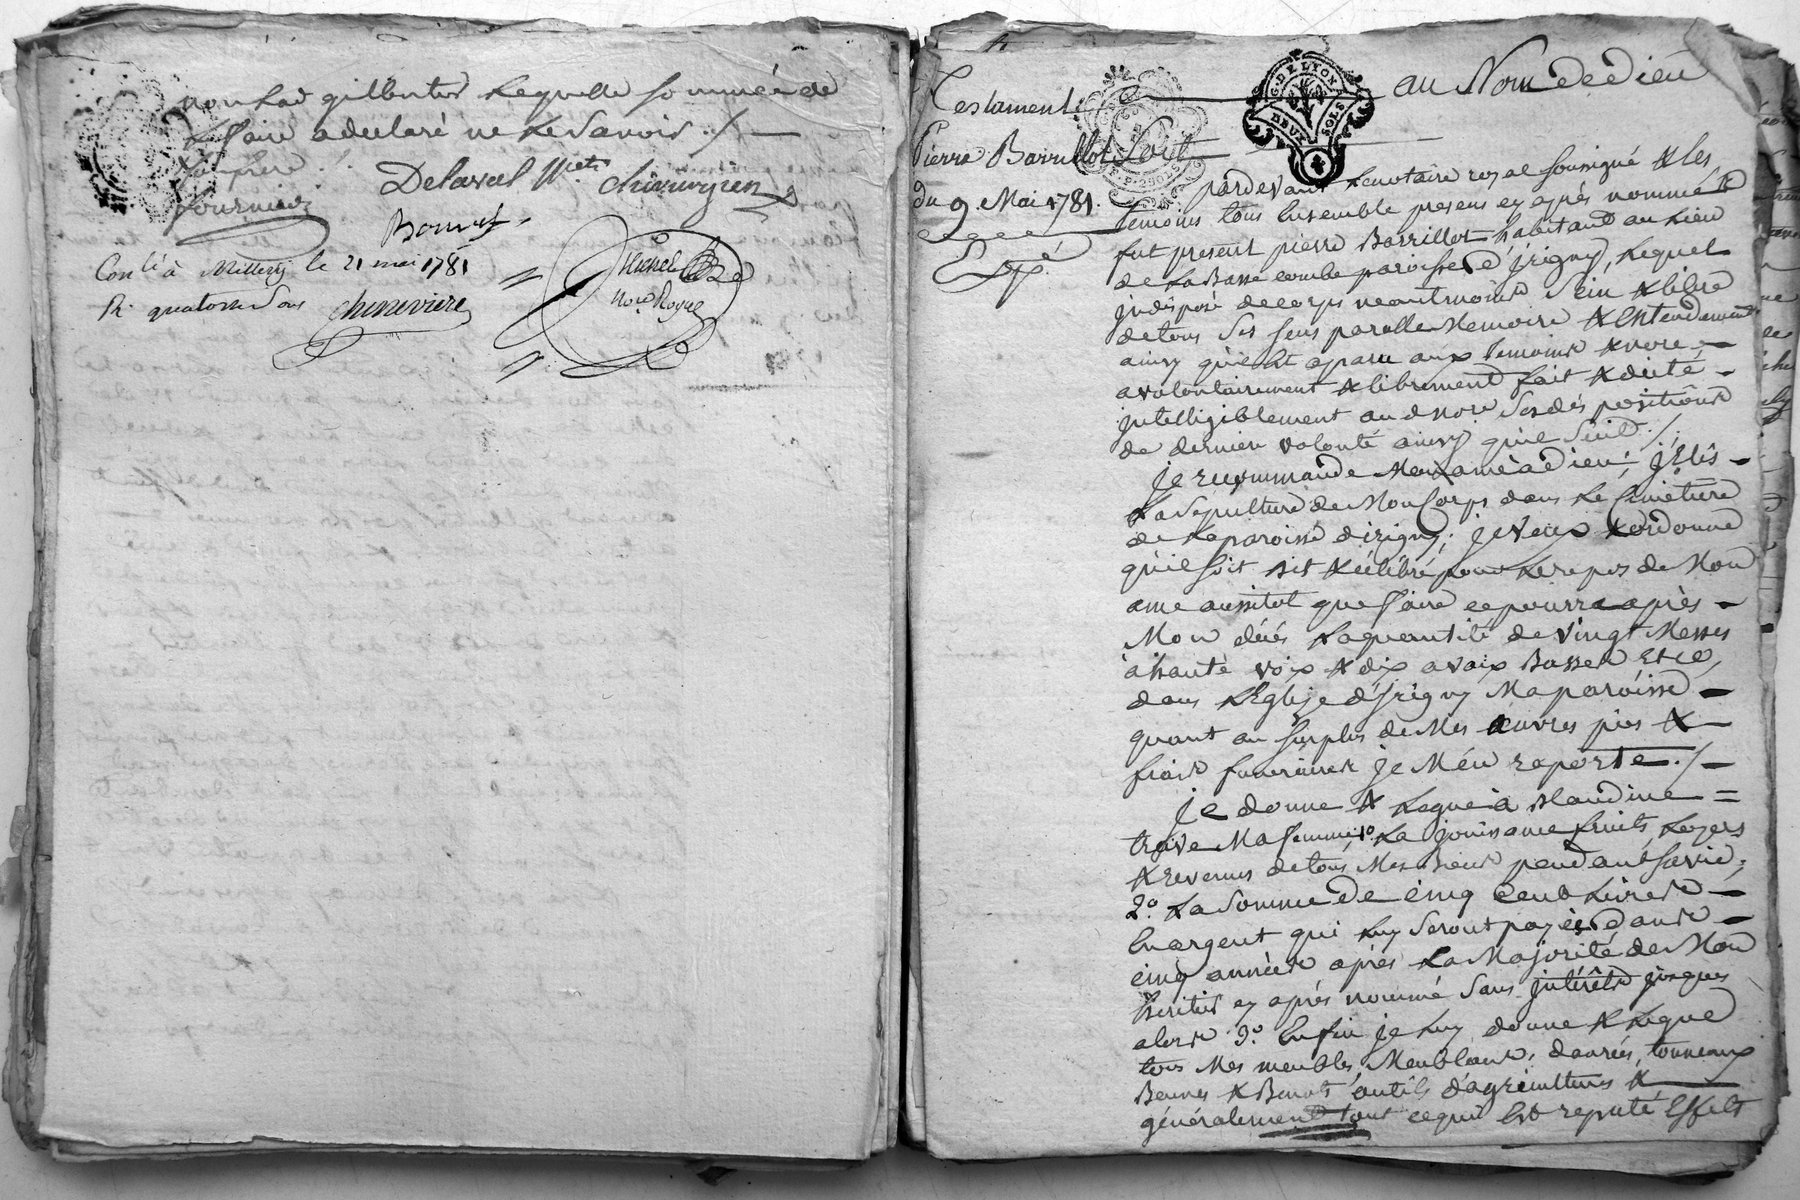 non plus gilbertes Laquelle sommée de
Le faire a declaré ne Le Savoir ./.
Delaval
chirurgien
fournier
Bonnet
Conlé à Millery le 21 mai 1781
R. quatorze Sous
cheneviere
Michel
No.re Royal
Testament
Pierre Barrillot
du 9. Mai 1781.
Expé.
G. DE LYON
DEUX SOLS
au Nom de dieu
Soit
pardevant Le notaire royal soussigné & les
temoins tous Ensemble presens cy après nommés
fut present pierre Barrillot habitant au Lieu
de La Basse combe paroisse d'irigny, Lequel
indisposé de corps neantmoins Sain & libre
de tous Ses sens parolle Memoire & Entendement
ainsy qu'il Est aparu aux temoins & no.re
a volontairement & librement fait & dicté
intelligiblement au d no.re Ses dispositions
de derniere volonté ainsy qu'il Suit ./.
je recommande Mon ame à dieu; j'Elis
La Sepulture de Mon Corps dans Le Cimetiere
de La paroisse d'irigny; je Veux & ordonne
qu'il soit dit & célébré pour Le repos de Mon
ame aussitot que faire ce pourra après
Mon décés La quantité de Vingt Messes
à haute voix & dix a voix Basse & ce,
dans L'Eglise d'irigny Ma paroisse
quant au surplus de Mes œuvres pies &
frais funeraires je M'en raporte ./.
je donne & Legue à Claudine
Ma femme 1º. La jouissance fruits, Loyers
& revenus de tous Mes Biens pendant sa vie;
2º. La Somme de cinq cent Livres
En argent qui Luy Seront payées dans
cinq années après La Majorité de Mon
heritier cy après nommé Sans intérêts jusques
alors 3º. Enfin je Luy donne & Legue
tous Mes meubles, Meublans, danrées, tonneaux
Bennes & Benots outils d'agriculture &
généralement tout ce qui Est reputé Effets